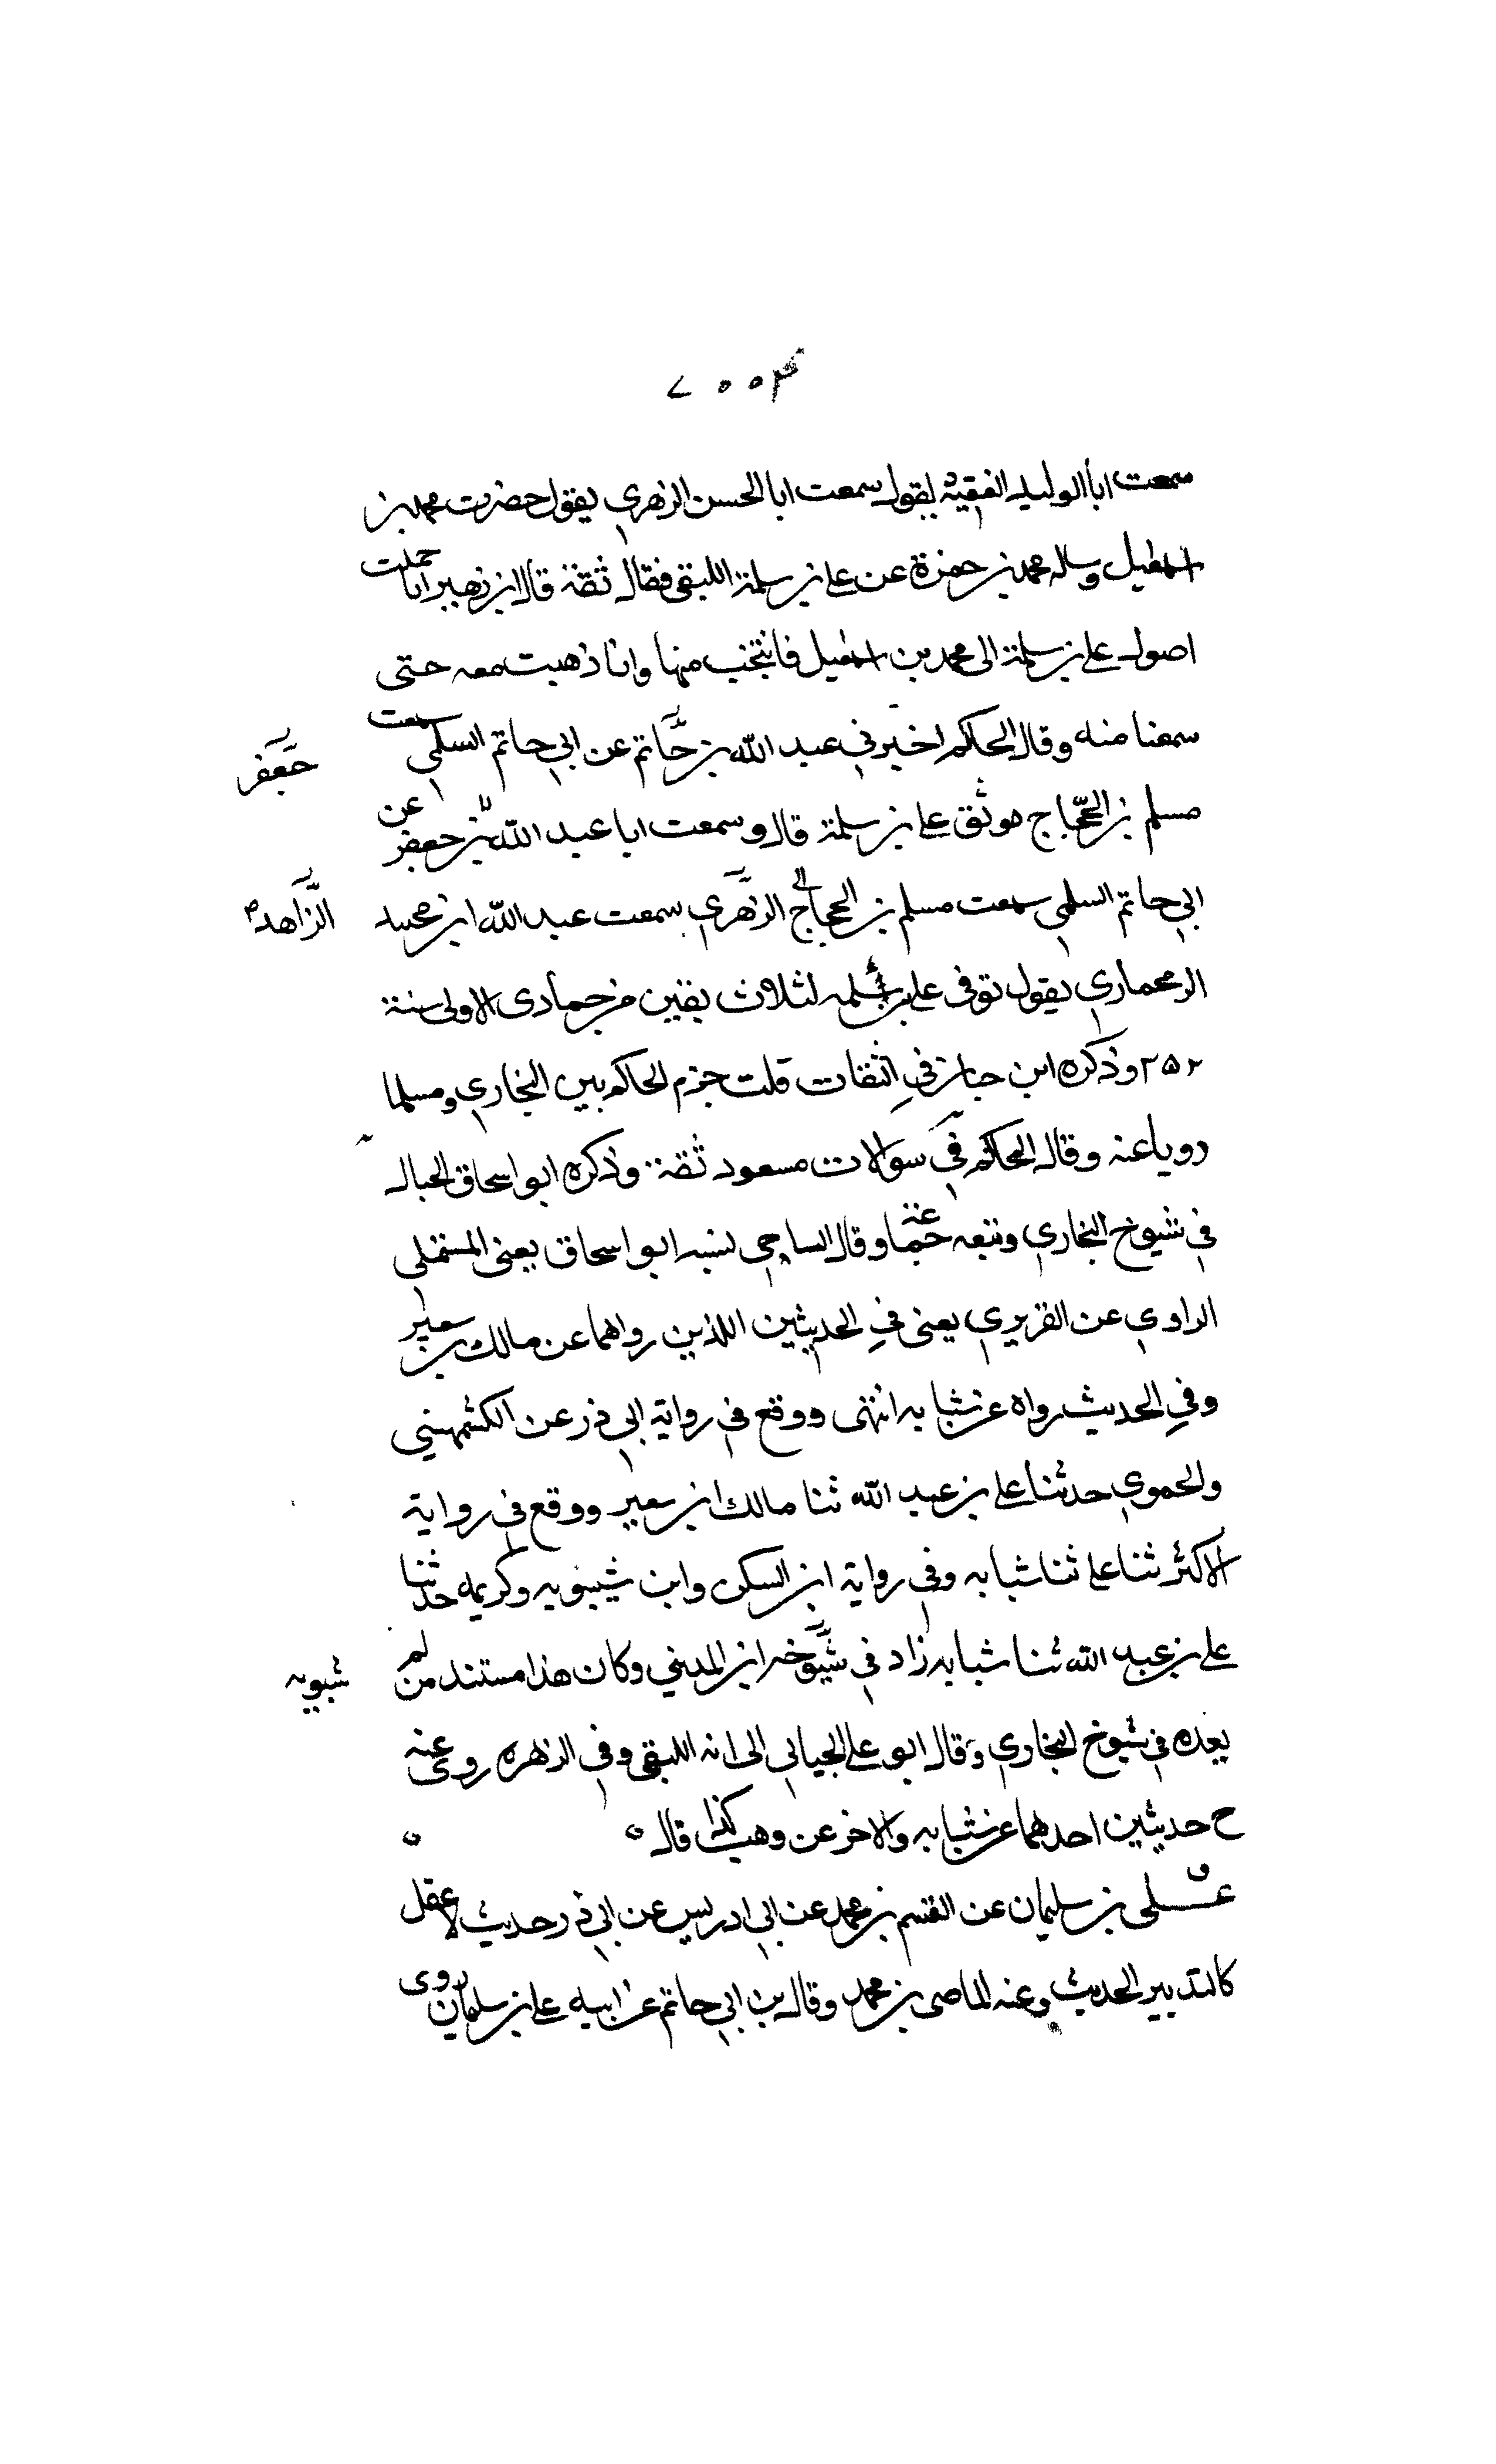 سمعت ابا الوليد الفقيه يقول سمعت ابا الحسن الزهري يقول حضرت محمد بن
اسمعيل وساله محمد بن حمزة عن علي بن سلمة اللبقي فقال ثقة قال ابن زهير انا حملت
اصول علي بن سلمة الى محمد بن اسمعيل فانتخب منها وانا ذهبت معه حتى
سمعنا منه وقال الحاكم اخبرني عبد الله بن حاتم عن ابي حاتم السلمي سمعت
جعفر
مسلم بن الحجاج هو ثق علي بن سلمة قال وسمعت ابا عبد الله بن جعفر عن
ابي حاتم السلمي سمعت مسلم بن الحجاج الزهري سمعت عبد الله ابن محمد
الزاهد
يقول توفي علي بن سلمه لثلاث بقين من جمادى الاولى سنة
٢٥٢ وذكره ابن حبان في الثقات قلت جزم الحاكم بين البخاري ومسلما
رويا عنه وقال الحاكم في سوالات مسعود ثقة وذكره ابو اسحاق الحبال
في شيوخ البخاري وتبعه وقال الساجي نسبه ابو اسحاق يعني المستملي
الراوي عن الفربري يعني في الحديثين اللذين رواهما عن مالك بن سعير
وفي الحديث رواه عن شبابه انتهى ووقع في رواية ابي ذر عن الكشمهيني
والحموي حدثنا علي بن عبد الله ثنا مالك ابن سعير ووقع في رواية
الاكثر ثنا علي ثنا شبابه وفي رواية ابن السكن وابن شيبويه وكريمه حدثنا
علي بن عبد الله ثنا شبابه زاد في شيوخه ابن المديني وكان هذا مستند من لم
شبويه
يعده في شيوخ البخاري وقال ابو علي الجياني الى انه اللبقي وفي الزهره روى عنه
خ حديثين احدهما عن شبابه والاخر عن وهب كذا قال
علي بن سليمان عن القسم بن محمد عن ابي ادريس عن ابي ذر حديث لا عقل
كالتدبير الحديث وعنه الماضي بن محمد وقال بن ابي حاتم عن ابيه علي بن سليمان روى